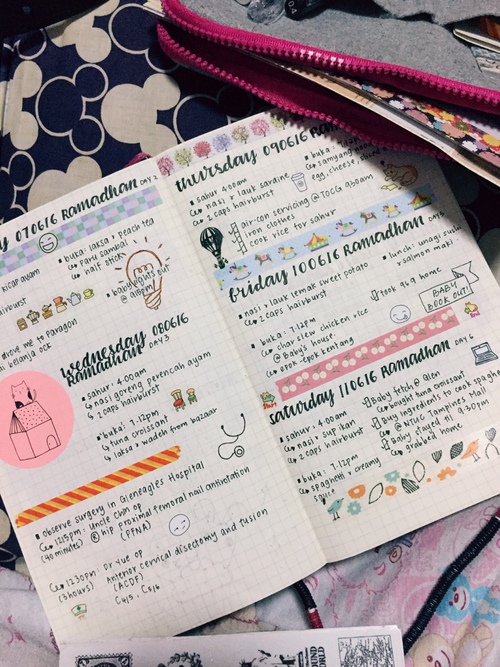 y 070616 Ramadhan DAY 2
kicap ayam
hairburst
• buka: laksa + peach tea
↳ paru sambal
↳ half stick
• baby
@ 
drove me to Paragon
belanja OCK
wednesday 080616
Ramadhan DAY 3
• sahur : 4:00am
↳ nasi goreng perencah ayam
↳ 2 caps hairburst
• buka : 7:12pm
↳ tuna croissant
↳ laksa + wadeh from bazaar
• observe surgery in Gleneagles Hospital
↳ 1215pm : Uncle Chin op
(40 minutes) hip proximal femoral nail antirotation
(PFNA)
↳ 1230pm : Dr Yue op
(3 hours) Anterior cervical disectomy and fusion
(ACDF)
C4/5, C5/6
thursday 090616 Ram
• sahur 4:00am
↳ nasi + lauk sardine
↳ 2 caps hairburst
• buka :
↳ samyang
egg, cheese,
air-con servicing @ TOCG 930am
iron clothes
cook rice for sahur
friday 100616 Ramadhan DAY 5
• nasi + lauk lemak sweet potato
↳ 2 caps hairburst
• lunch : unagi sushi
+ salmon maki
• buka : 7:12pm
↳ char siew chicken rice
@ Baby's house
↳ otok-otok kentang
took 969 home
BABY
BOOK OUT!
saturday 110616 Ramadhan DAY 6
• sahur : 4:00am
↳ nasi + sup ikan
↳ 2 caps hairburst
• buka : 7:12pm
↳ spaghetti + creamy
sauce
Baby fetch @ Glen
↳ bought tuna croissant
Buy ingredients to cook spaghe
↳ @ NTUC Tampines Mall
Baby stayed til 9:30pm
↳ Grabbed home